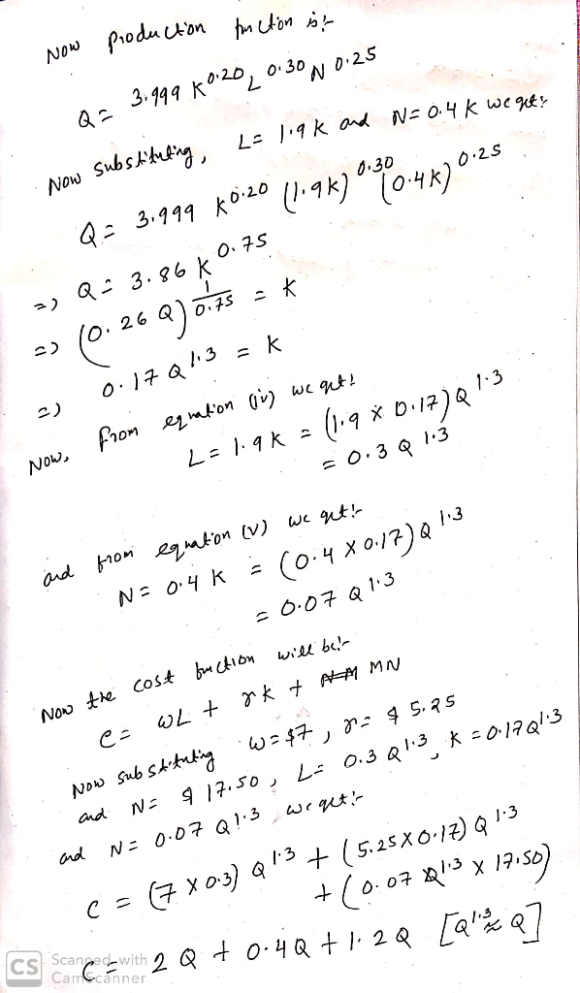 Now production function is:-
Q = 3.999 K^0.20 L^0.30 N^0.25
Now substituting, L = 1.9K and N = 0.4K we get:
Q = 3.999 K^0.20 (1.9K)^0.30 (0.4K)^0.25
=> Q = 3.86 K^0.75
=> (0.26 Q)^1/0.75 = K
=> 0.17 Q^1.3 = K
Now, from equation (iv) we get:
L = 1.9K = (1.9 × 0.17) Q^1.3
= 0.3 Q^1.3
and from equation (v) we get:-
N = 0.4 K = (0.4 × 0.17) Q^1.3
= 0.07 Q^1.3
Now the cost function will be:-
C = wL + rK + MN
Now substituting w = $7, r = $5.25
and N = $17.50, L = 0.3 Q^1.3, K = 0.17 Q^1.3
and N = 0.07 Q^1.3, we get:-
C = (7 × 0.3) Q^1.3 + (5.25 × 0.17) Q^1.3
+ (0.07 Q^1.3 × 17.50)
C = 2Q + 0.4Q + 1.2Q [Q^1.3 ≈ Q]
CS Scanned with
CamScanner